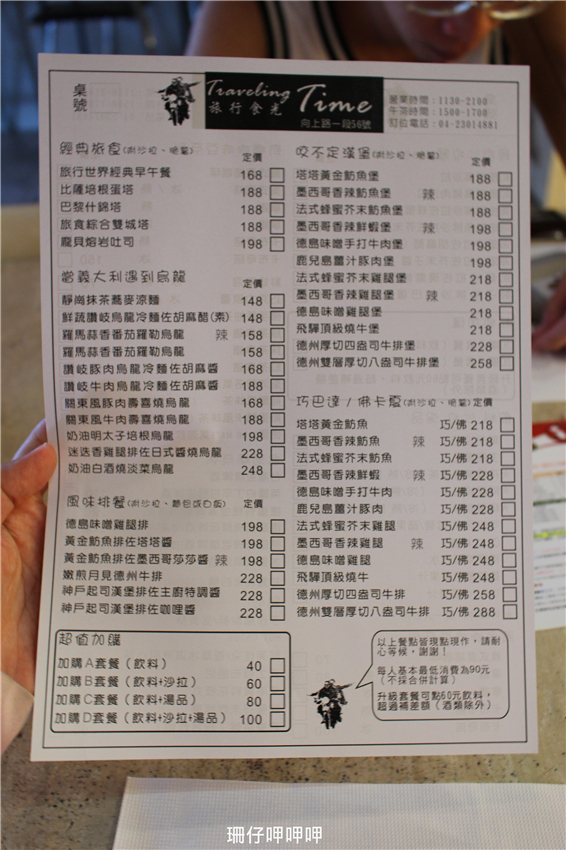 桌號
Traveling Time
旅行食光
向上路一段56號
營業時間：1130-2100
午茶時間：1500-1700
訂位電話：04-23014881
經典旅食(附沙拉、脆薯) 定價
旅行世界經典早午餐 168
比薩培根蛋塔 188
巴黎什錦塔 188
旅食綜合雙城塔 188
龐貝熔岩吐司 198
當義大利遇到烏龍 定價
靜崗抹茶蕎麥涼麵 148
鮮蔬讚岐烏龍冷麵佐胡麻醋(素) 148
羅馬蒜香番茄羅勒烏龍 辣 158
羅馬蒜香番茄羅勒烏龍 158
讚岐豚肉烏龍冷麵佐胡麻醬 168
讚岐牛肉烏龍冷麵佐胡麻醬 188
關東風豚肉壽喜燒烏龍 168
關東風牛肉壽喜燒烏龍 188
奶油明太子培根烏龍 198
迷迭香雞腿排佐日式醬燒烏龍 228
奶油白酒燒淡菜烏龍 248
風味排餐(附沙拉、麵包或白飯) 定價
德島味噌雞腿排 198
黃金魴魚排佐塔塔醬 198
黃金魴魚排佐墨西哥莎莎醬 辣 198
嫩煎月見德州牛排 228
神戶起司漢堡排佐主廚特調醬 228
神戶起司漢堡排佐咖哩醬 228
超值加購
加購A套餐（飲料） 40
加購B套餐（飲料+沙拉） 60
加購C套餐（飲料+湯品） 80
加購D套餐（飲料+沙拉+湯品） 100
咬不定漢堡(附沙拉、脆薯) 定價
塔塔黃金魴魚堡 188
墨西哥香辣魴魚堡 辣 188
法式蜂蜜芥末魴魚堡 188
墨西哥香辣鮮蝦堡 辣 198
德島味噌手打牛肉堡 198
鹿兒島薑汁豚肉堡 198
法式蜂蜜芥末雞腿堡 218
墨西哥香辣雞腿堡 辣 218
德島味噌雞腿堡 218
飛驒頂級燒牛堡 218
德州厚切四盎司牛排堡 228
德州雙層厚切八盎司牛排堡 258
巧巴達/佛卡夏(附沙拉、脆薯) 定價
塔塔黃金魴魚 巧/佛 218
墨西哥香辣魴魚 辣 巧/佛 218
法式蜂蜜芥末魴魚 巧/佛 218
墨西哥香辣鮮蝦 辣 巧/佛 228
德島味噌手打牛肉 巧/佛 228
鹿兒島薑汁豚肉 巧/佛 228
法式蜂蜜芥末雞腿 巧/佛 248
墨西哥香辣雞腿 辣 巧/佛 248
德島味噌雞腿 巧/佛 248
飛驒頂級燒牛 巧/佛 248
德州厚切四盎司牛排 巧/佛 258
德州雙層厚切八盎司牛排 巧/佛 288
以上餐點皆現點現作，請耐
心等候，謝謝！
每人基本最低消費為90元
（不採合併計算）
升級套餐可點60元飲料，
超過補差額（酒類除外）
珊仔呷呷呷